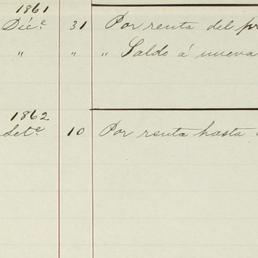 1861
Dic.e 31 Por renta del pr
" " " Saldo á nueva
1862
set.e 10 Por renta hasta